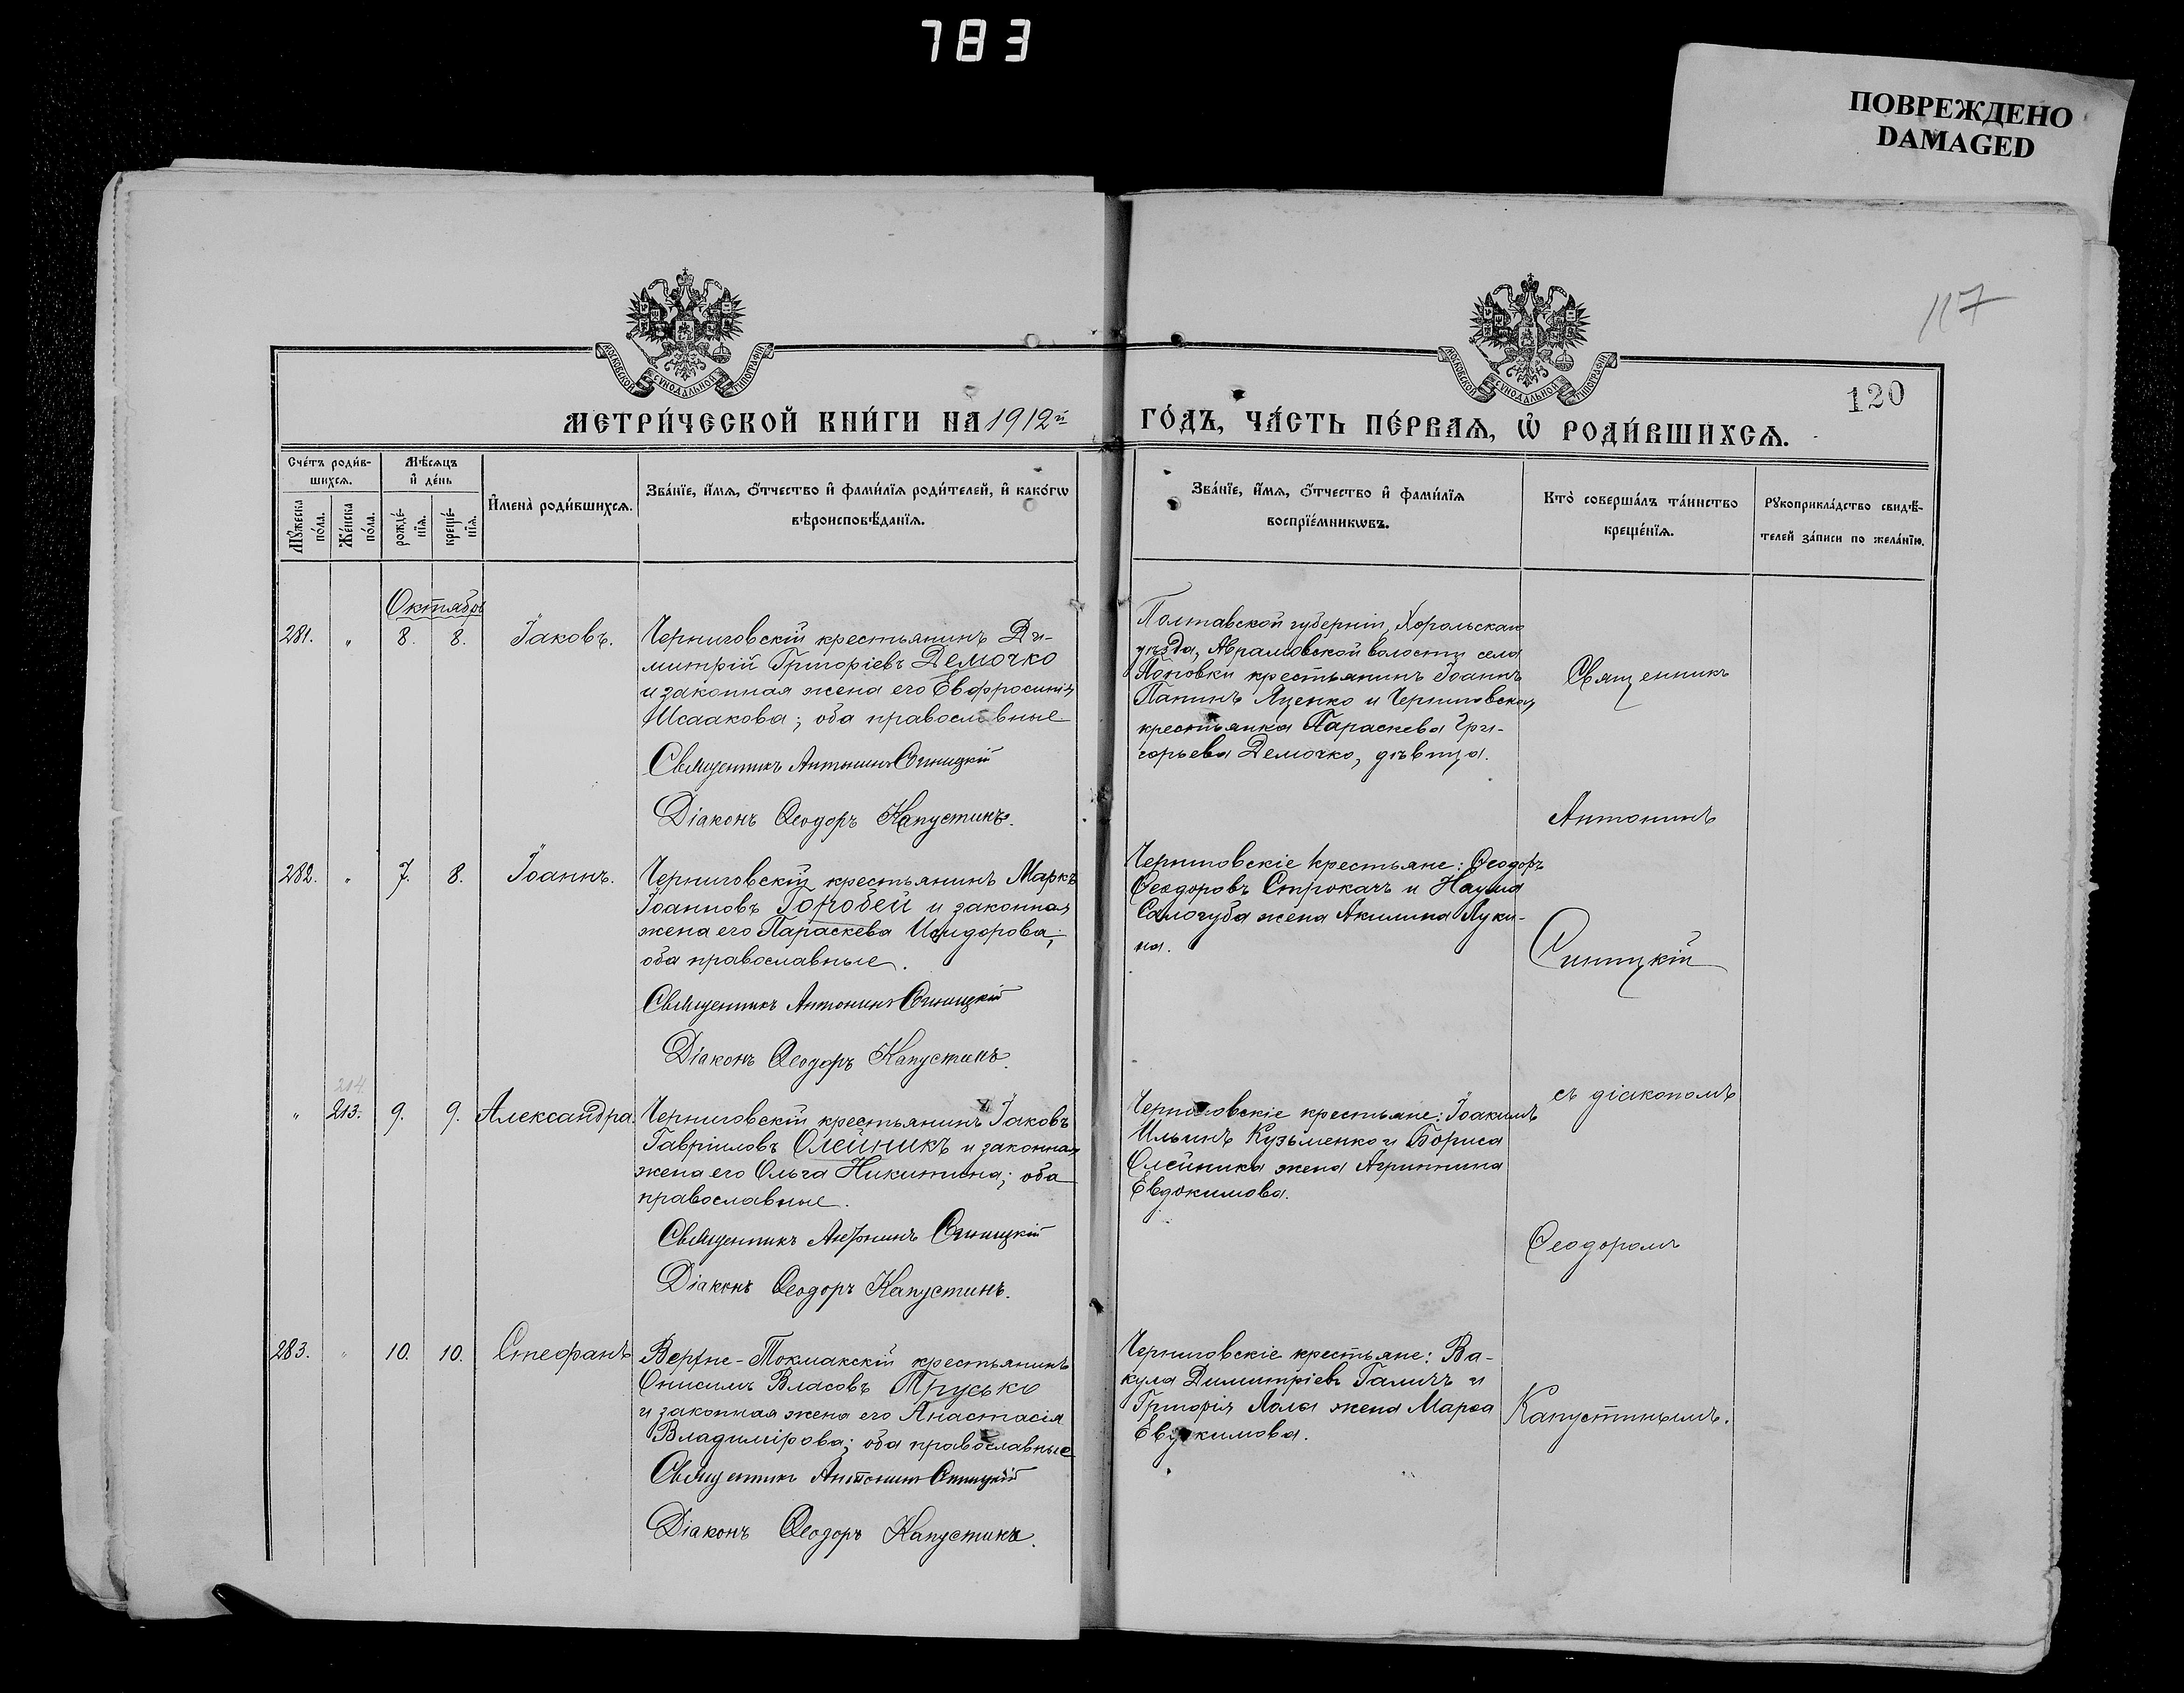 783
ПОВРЕЖДЕНО
DAMAGED
117
120
МОСКОВСКОЙ СѴНОДАЛЬНОЙ ТИПОГРАФІИ
МОСКОВСКОЙ СѴНОДАЛЬНОЙ ТИПОГРАФІИ
МЕТРИ́ЧЕСКОЙ КНИ́ГИ НА 1912й
ГО́ДЪ, ЧА́СТЬ ПЕ́РВАЯ, Ѡ҆ РОДИ́ВШИХСЯ.
Сче́тъ роди́в-
шихся.
Мꙋ́жеска по́ла.
Же́нска по́ла.
Мѣ́сяцъ
и҆ де́нь
рожде́-
нїя.
креще́-
нїя.
И҆мена̀ роди́вшихся.
Зва́нїе, и҆́мя, ѻ҆́тчество и҆ фами́лїя роди́телей, и҆ како́гѡ
вѣроисповѣ́данїя.
Зва́нїе, и҆́мя, ѻ҆́тчество и҆ фами́лїя
воспрїе́мникѡвъ.
Кто̀ соверша́лъ та́инство
креще́нїя.
Рꙋкоприкла́дство свидѣ́-
телей за́писи по жела́нїю.
Октябрь
281. " 8. 8. Іаковъ.
Черниговскій крестьянинъ Ди-
митрій Григоріевъ Демочко
и законная жена его Евфросинія
Исаакова; оба православные
Священникъ Антонинъ Синицкій
Діаконъ Ѳеодоръ Капустинъ.
Полтавской губерніи, Хорольскаго
уѣзда, Аврамовской волости села
Поповки крестьянинъ Іоаннъ
Яценко и Черниговская
крестьянка Параскева Гри-
горьева Демочко, дѣвица.
Священникъ
Антонинъ
282. " 7. 8. Іоаннъ.
Черниговскій крестьянинъ Маркъ
Іоанновъ Горобей и законная
жена его Параскева Исидорова;
оба православные.
Священникъ Антонинъ Синицкій
Діаконъ Ѳеодоръ Капустинъ.
Черниговскіе крестьяне: Ѳеодоръ
Ѳеодоровъ Строкачъ и Наума
Салогуба жена Акилина Луки-
на.
Синицкій
214.
" 213. 9. 9. Александра.
Черниговскій крестьянинъ Іаковъ
Гавріиловъ Олейникъ и законная
жена его Ольга Никитина; оба
православные.
Священникъ Антонинъ Синицкій
Діаконъ Ѳеодоръ Капустинъ.
Черниговскіе крестьяне: Іоакимъ
Ильинъ Кузьменко и Бориса
Олейника жена Агриппина
Евдокимова.
съ діакономъ
Ѳеодоромъ
283. " 10. 10. Стефанъ
Верхне-Токмакскій крестьянинъ
Онисимъ Власовъ Трусько
и законная жена его Анастасія
Владимірова; оба православные
Священникъ Антонинъ Синицкій
Діаконъ Ѳеодоръ Капустинъ.
Черниговскіе крестьяне: Ва-
кула Димитріевъ Галичъ и
Григорія жена Марѳа
Евдокимова.
Капустинымъ.